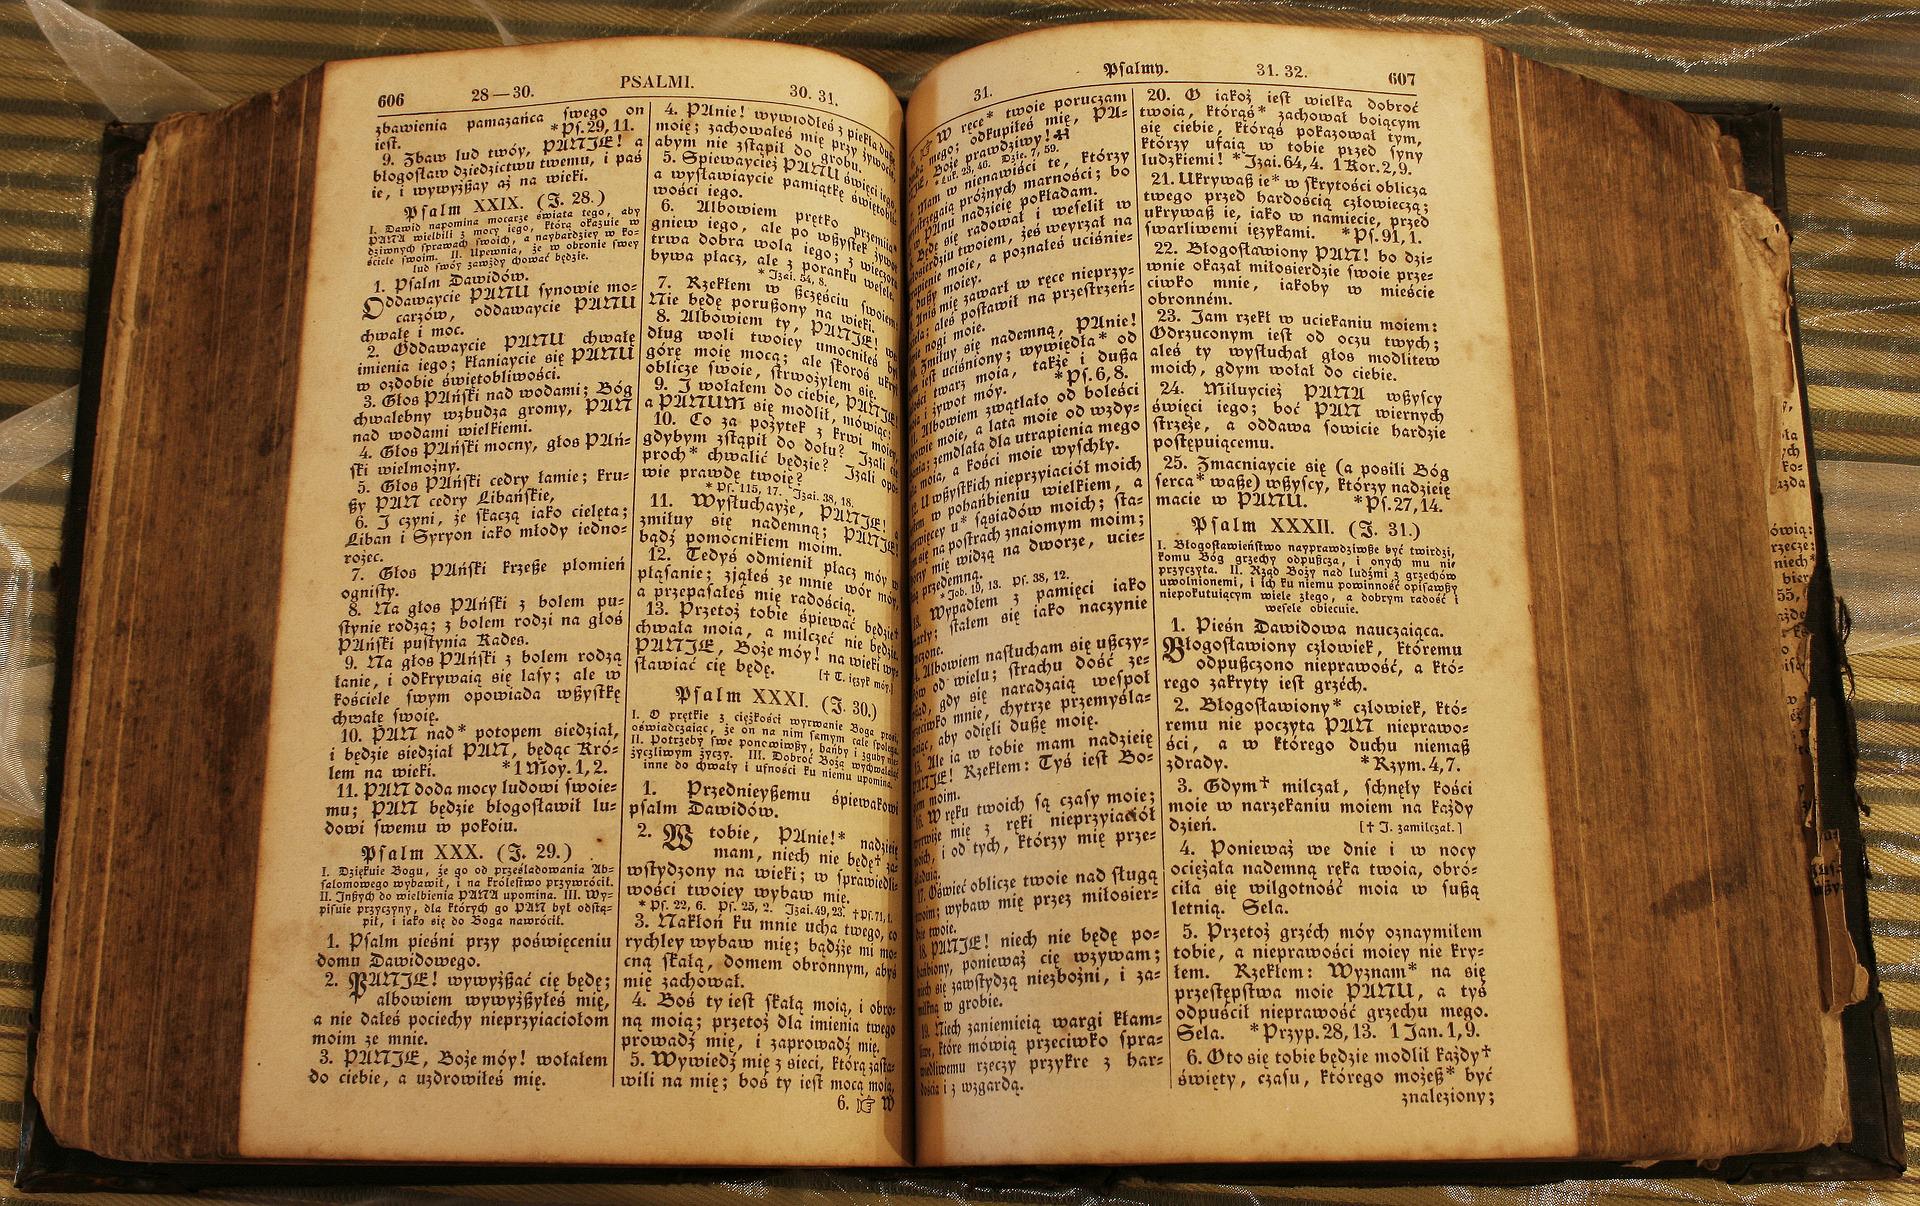 606 28—30. PSALMI. 30. 31.
zbawienia pamazańca ſwego on
ieſt. *Pſ. 29, 11.
9. Zbaw lud twóy, PANJE! a
błogosław dziedzictwu twemu, i paś
ie, i wywyżßay aż na wieki.
Pſalm XXIX. (J. 28.)
I. Dawid napomina mocarze świata tego, aby
PANA wielbili z mocy iego, którą okazuie w
dziwnych ſprawach ſwoich, a naybardziey w ko-
ściele ſwoim. II. Upewnia, że w obronie ſwey
lud ſwóy zawżdy chować będzie.
1. Pſalm Dawidów.
Oddawaycie PANU ſynowie mo-
carzów, oddawaycie PANU
chwałę i moc.
2. Oddawaycie PANU chwałę
imienia iego; kłaniaycie się PANU
w ozdobie świętobliwości.
3. Głos PAńſki nad wodami; Bóg
chwalebny wzbudza gromy, PAN
nad wodami wielkiemi.
4. Głos PAńſki mocny, głos PAń-
ſki wielmożny.
5. Głos PAńſki cedry łamie; kru-
ßy PAN cedry Libańſkie,
6. J czyni, że ſkaczą iako cielęta;
Liban i Syryon iako młody iedno-
rożec.
7. Głos PAńſki krzeße płomień
ogniſty.
8. Na głos PAńſki z bolem pu-
ſtynie rodzą; z bolem rodzi na głos
PAńſki puſtynia Kades.
9. Na głos PAńſki z bolem rodzą
łanie, i odkrywaią się laſy; ale w
kościele ſwym opowiada wßyſtkę
chwałę ſwoię.
10. PAN nad* potopem siedział,
i będzie siedział PAN, będąc Kró-
lem na wieki. *1 Moy. 1, 2.
11. PAN doda mocy ludowi ſwoie-
mu; PAN będzie błogoſławił lu-
dowi ſwemu w pokoiu.
Pſalm XXX. (J. 29.)
I. Dziękuie Bogu, że go od prześladowania Ab-
ſalomowego wybawił, i na króleſtwo przywrócił.
II. Jnßych do wielbienia PANA upomina. III. Wy-
piſuie przyczyny, dla których go PAN był odſtą-
pił, i iako się do Boga nawrócił.
1. Pſalm pieśni przy poświęceniu
domu Dawidowego.
2. PANJE! wywyżßać cię będę;
albowiem wywyżßyłeś mię,
a nie dałeś pociechy nieprzyiaciołom
moim ze mnie.
3. PANJE, Boże móy! wołałem
do ciebie, a uzdrowiłeś mię.
4. PAnie! wywiodłeś z piekła dußę
moię; zachowałeś mię przy żywocie,
abym nie zſtąpił do grobu.
5. Spiewaycież PANU święci iego,
a wyſławiaycie pamiątkę świętobli-
wości iego.
6. Albowiem prętko przemiia
gniew iego, ale po wßyſtek żywot
trwa dobra wola iego; z wieczora
bywa płacz, ale z poranku weſele.
* Jzai. 54, 8.
7. Rzekłem w ßczęściu ſwoiem:
Nie będę porußony na wieki.
8. Albowiem ty, PANJE! we-
dług woli twoiey umocniłeś był
górę moię mocą; ale ſkoroś ukrył
oblicze ſwoie, ſtrwożyłem się.
9. J wołałem do ciebie, PANJE!
a PANUM się modlił, mówiąc:
10. Co za pożytek z krwi moiey,
gdybym zſtąpił do dołu? Jzali cię
proch* chwalić będzie? Jzali opo-
wie prawdę twoię?
* Pſ. 115, 17. Jzai. 38, 18.
11. Wyſłuchayże, PANJE! a
zmiłuy się nademną; PANJE!
bądź pomocnikiem moim.
12. Tedyś odmienił płacz móy w
pląſanie; zjąłeś ze mnie wór móy,
a przepaſałeś mię radością.
13. Przetoż tobie śpiewać będzie†
chwała moia, a milczeć nie będzie.
PANJE, Boże móy! na wieki wy-
ſławiać cię będę. [† T. ięzyk móy.]
Pſalm XXXI. (J. 30.)
I. O prętkie z ciężkości wyrwanie Boga prosi,
oświadczaiąc, że on na nim ſamym cale ſpolega.
II. Potrzeby ſwe ponowiwßy, hańby i zguby nie-
życzliwym życzy. III. Dobroć Bożą wychwalaiąc
inne do chwały i ufności ku niemu upomina.
1. Przednieyßemu śpiewakowi
pſalm Dawidów.
2. W tobie, PAnie!* nadzieię
mam, niech nie będę† za-
wſtydzony na wieki; w ſprawiedli-
wości twoiey wybaw mię.
* Pſ. 22, 6. Pſ. 25, 2. Jzai. 49, 23. †Pſ. 71, 1.
3. Nakłoń ku mnie ucha twego, co
rychley wybaw mię; bądźże mi mo-
cną ſkałą, domem obronnym, abyś
mię zachował.
4. Boś ty ieſt ſkałą moią, i obro-
ną moią; przetoż dla imienia twego
prowadź mię, i zaprowadź mię.
5. Wywiedź mię z sieci, którą zaſta-
wili na mię; boś ty ieſt mocą moią,
6. ☞ W
31. Pſalmy. 31. 32. 607
6. ☞ W ręce* twoie poruczam
mego; odkupiłeś mię, PA-
NJE, Boże prawdziwy!
* Łuk. 23, 46. Dzie. 7, 59.
w nienawiści te, którzy
próżnych marności; bo
w PAnu nadzieię pokładam.
8. Będę się radował i weſelił w
miłosierdziu twoiem, żeś weyrzał na
utrapienie moie, a poznałeś uciśnie-
dußy moiey.
mię zawarł w ręce nieprzy-
aleś poſtawił na przeſtrzeń-
nogi moie.
10. Zmiłuy się nademną, PAnie!
ieſt uciśniony; wywiędła* od
twarz moia, także i dußa
i żywot móy. *Pſ. 6, 8.
11. Albowiem zwątlało od boleści
moie, a lata moie od wzdy-
zemdlała dla utrapienia mego
moia, a kości moie wyſchły.
12. U wßyſtkich nieprzyiaciół moich
w pohańbieniu wielkiem, a
u* ſąsiadów moich; ſta-
się na poſtrach znaiomym moim;
mię widzą na dworze, ucie-
przedemną.
* Job. 19, 13. Pſ. 38, 12.
13. Wypadłem z pamięci iako
ſtałem się iako naczynie
14. Albowiem naſłucham się ußczy-
od wielu; ſtrachu dość ze-
gdy się naradzaią weſpoł
przeciwko mnie, chytrze przemyśla-
aby odięli dußę moię.
15. Ale ia w tobie mam nadzieię
PANJE! Rzekłem: Tyś ieſt Bo-
giem moim.
16. W ręku twoich ſą czaſy moie;
wyrwiże mię z ręki nieprzyiaciół
moich, i od tych, którzy mię prze-
śladuią.
17. Oświeć oblicze twoie nad ſługą
twoim; wybaw mię przez miłosier-
dzie twoie.
18. PANJE! niech nie będę po-
hańbiony, ponieważ cię wzywam;
niech się zawſtydzą niezbożni, i za-
milkną w grobie.
19. Niech zaniemieią wargi kłam-
liwe, które mówią przeciwko ſpra-
wiedliwemu rzeczy przykre z har-
dością i z wzgardą.
20. O iakoż ieſt wielka dobroć
twoia, którąś* zachował boiącym
się ciebie, którąś pokazował tym,
którzy ufaią w tobie przed ſyny
ludzkiemi! *Jzai. 64, 4. 1 Kor. 2, 9.
21. Ukrywaß ie* w ſkrytości oblicza
twego przed hardością człowieczą;
ukrywaß ie, iako w namiecie, przed
ſwarliwemi ięzykami. *Pſ. 91, 1.
22. Błogoſławiony PAN! bo dzi-
wnie okazał miłosierdzie ſwoie prze-
ciwko mnie, iakoby w mieście
obronném.
23. Jam rzekł w uciekaniu moiem:
Odrzuconym ieſt od oczu twych;
aleś ty wyſłuchał głos modlitew
moich, gdym wołał do ciebie.
24. Miłuycież PANA wßyſcy
święci iego; boć PAN wiernych
ſtrzeże, a oddawa ſowicie hardzie
poſtępuiącemu.
25. Zmacniaycie się (a posili Bóg
ſerca* waße) wßyſcy, którzy nadzieię
macie w PANU. *Pſ. 27, 14.
Pſalm XXXII. (J. 31.)
I. Błogoſławieńſtwo nayprawdziwße być twirdzi,
komu Bóg grzechy odpußcza, i onych mu nie
przyczyta. II. Rząd Boży nad ludźmi z grzechów
uwolnionemi, i ich ku niemu powinność opiſawßy
niepokutuiącym wiele złego, a dobrym radość i
weſele obiecuie.
1. Pieśń Dawidowa nauczaiąca.
Błogoſławiony człowiek, któremu
odpußczono nieprawość, a któ-
rego zakryty ieſt grzéch.
2. Błogoſławiony* człowiek, któ-
remu nie poczyta PAN nieprawo-
ści, a w którego duchu niemaß
zdrady. *Rzym. 4, 7.
3. Gdym† milczał, ſchnęły kości
moie w narzekaniu moiem na każdy
dzień. [† J. zamilczał.]
4. Ponieważ we dnie i w nocy
ociężała nademną ręka twoia, obró-
ciła się wilgotność moia w ſußą
letnią. Sela.
5. Przetoż grzéch móy oznaymiłem
tobie, a nieprawości moiey nie kry-
łem. Rzekłem: Wyznam* na się
przeſtępſtwa moie PANU, a tyś
odpuścił nieprawość grzechu mego.
Sela. *Przyp. 28, 13. 1 Jan. 1, 9.
6. Oto się tobie będzie modlił każdy†
święty, czaſu, którego możeß* być
znaleziony;